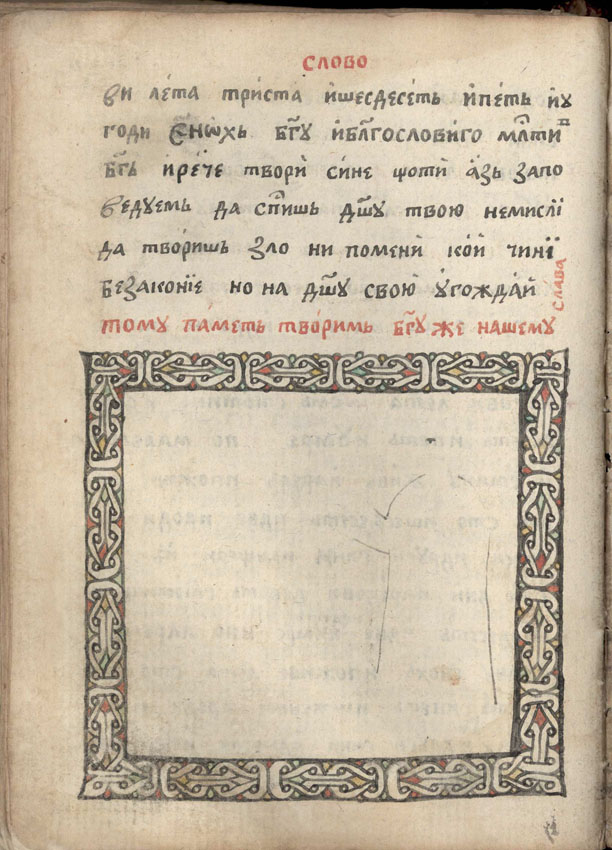 СЛОВО
ви лета триста и҆шесдесеть и҆петь и҆у
годи Є҆нѡхь бг҃у и҆блг҃ослови́го мл҃ти
бг҃ь и҆рече твори́ сине щоти́ а҆зь запо
ведуемь да спи҃шь дш҃у твою немислі
да твори́шь зло ни помени́ кои́ чини́
безаконїе но на дш҃у свою у҆гожда́й
тому па́меть тво́римь бг҃у же нашему
слава